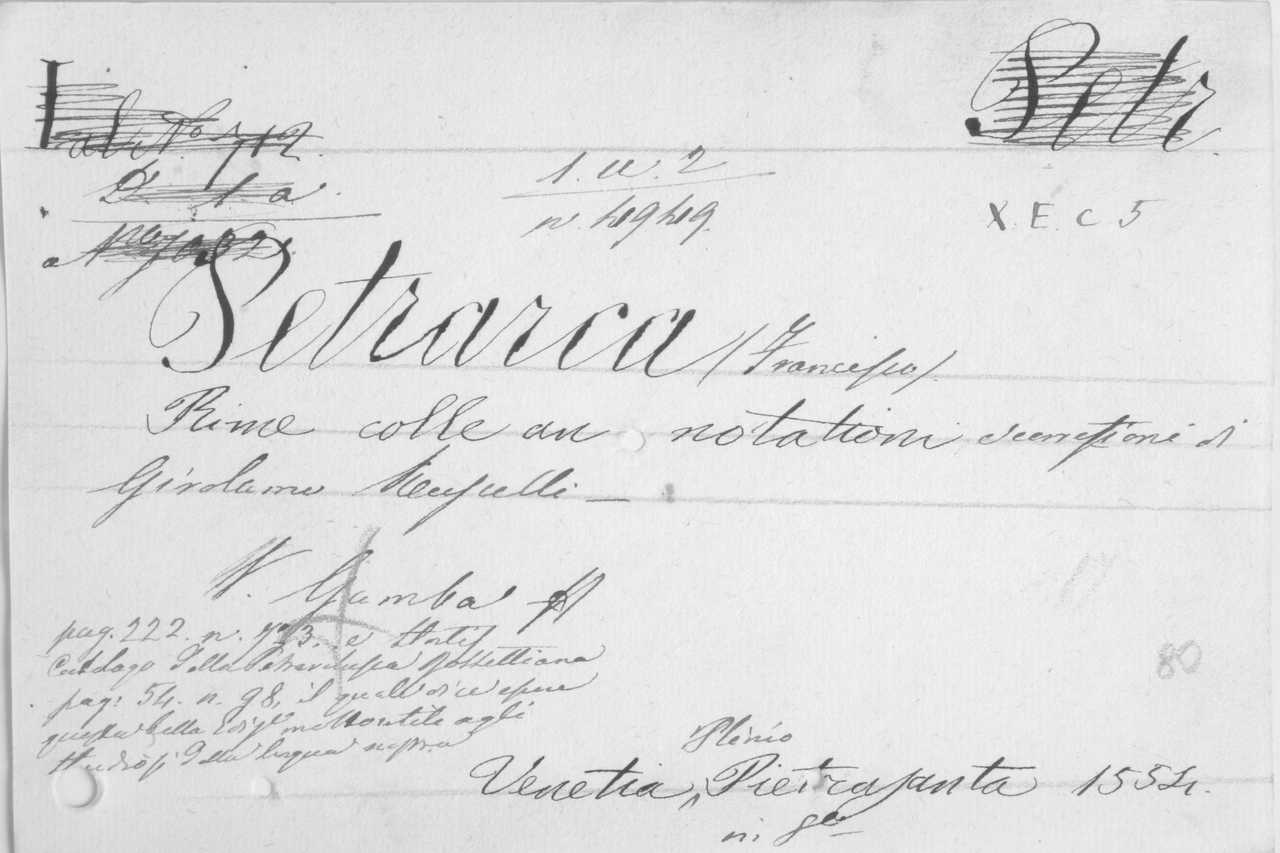 Petr.
N.º 712
1. a
1. a. 2
n. 4949.
X. E. C 5
Petrarca (Francesco)
Rime colle an notationi di
Girolamo Ruscelli —
V. Gamba
pag. 222. n. 723. e Hortis
Catalogo della Petrarchesca Rossettiana
pag: 54. n. 98, il quale dice essere
questa bella Ediz.e molto utile agli
studiosi della lingua nostra
80
Plinio
Venetia, Pietrasanta 1554.
in 8º